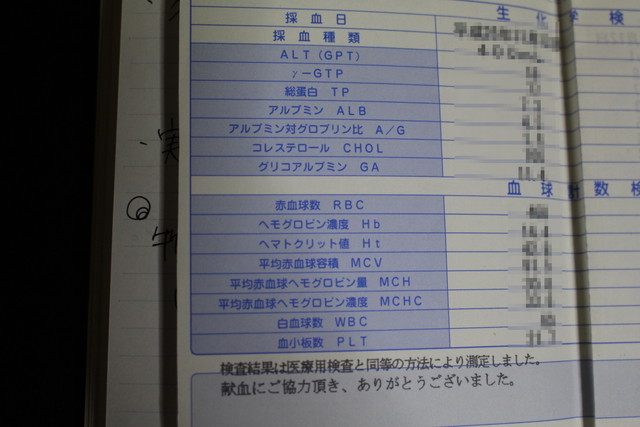 生化学検
採血日
採血種類
ALT(GPT)
γ-GTP
総蛋白 TP
アルブミン ALB
アルブミン対グロブリン比 A/G
コレステロール CHOL
グリコアルブミン GA
血球計数検
赤血球数 RBC
ヘモグロビン濃度 Hb
ヘマトクリット値 Ht
平均赤血球容積 MCV
平均赤血球ヘモグロビン量 MCH
平均赤血球ヘモグロビン濃度 MCHC
白血球数 WBC
血小板数 PLT
検査結果は医療用検査と同等の方法により測定しました。
献血にご協力頂き、ありがとうございました。